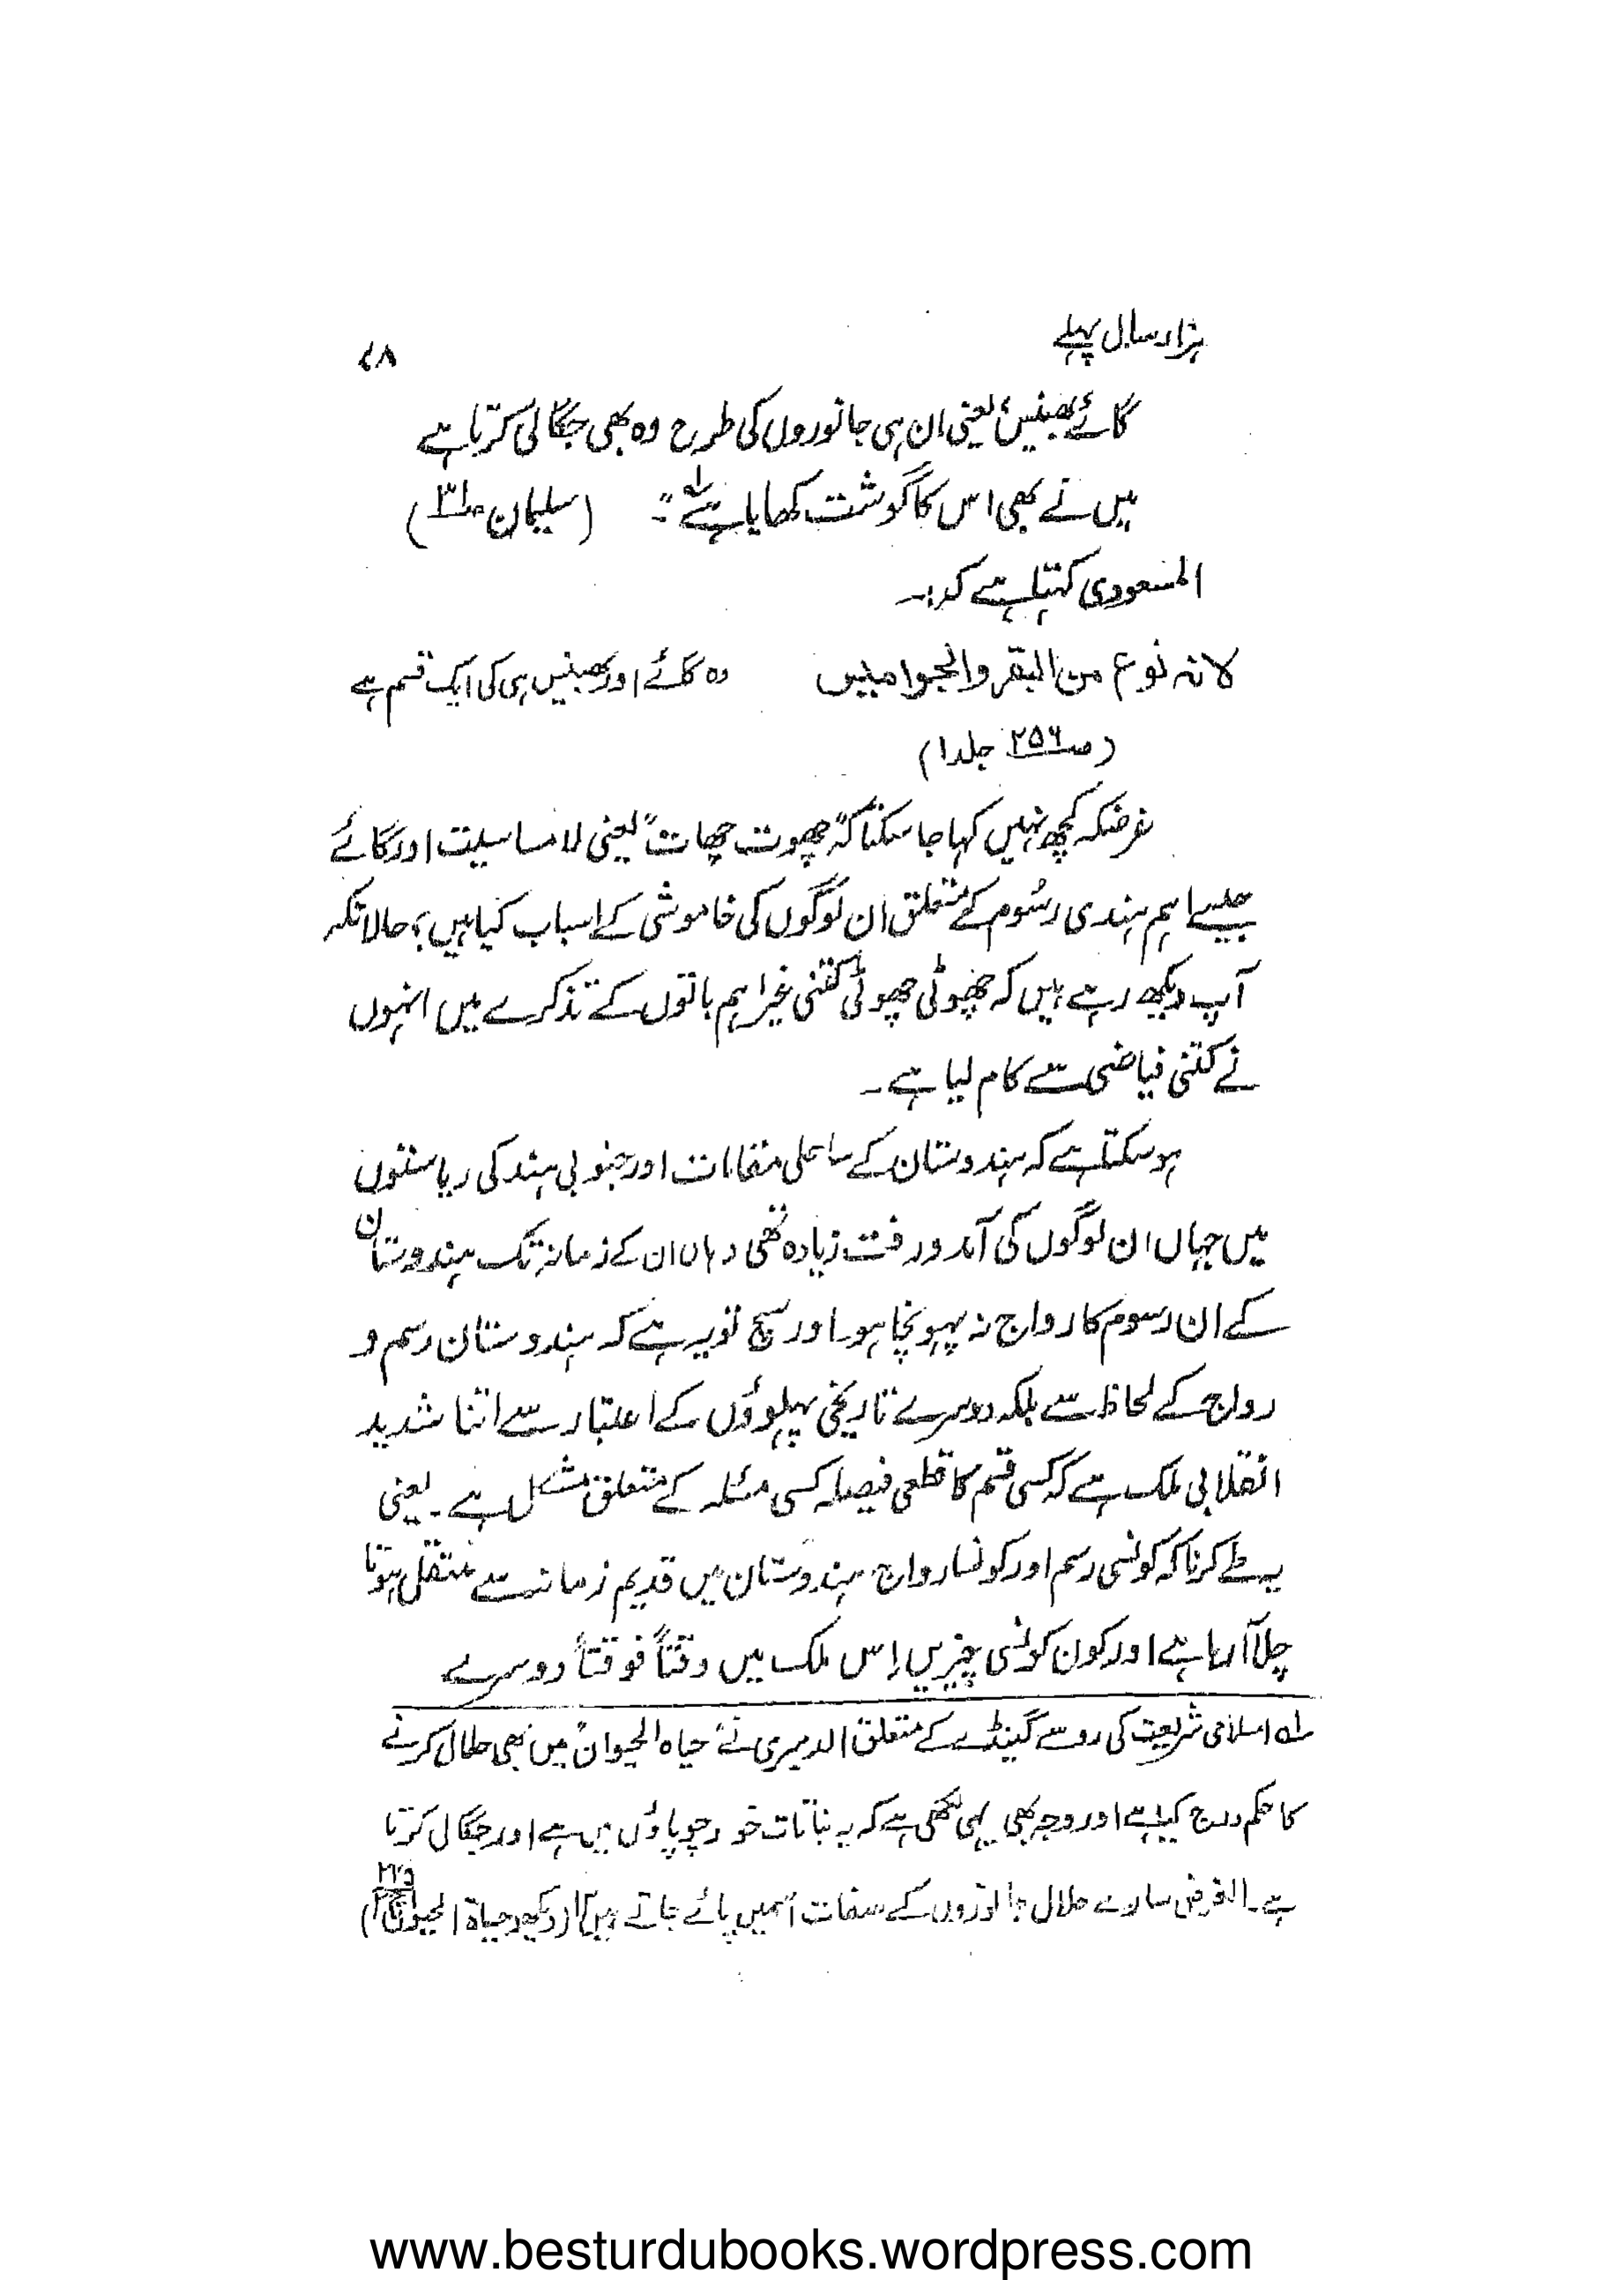 ہزار سال پہلے
۷۸
گائے بھینس، یعنی ان ہی جانوروں کی طرح وہ بھی جگالی کرتا ہے
میں نے بھی اس کا گوشت کھایا ہے لہ"۔ (سلیمان ص۳۱)
المسعودی کہتا ہے کہ:۔
لانہ نوع من البقر والجوامیس وہ گائے اور بھینس ہی کی ایک قسم ہے
(ص۲۵۶ جلد۱)
غرضکہ کچھ نہیں کہا جا سکتا کہ "چھوت چھات" یعنی لامساسیت اور گائے
جیسے اہم ہندی رسُوم کے متعلق ان لوگوں کی خاموشی کے اسباب کیا ہیں؟ حالانکہ
آپ دیکھ رہے ہیں کہ چھوٹی چھوٹی کتنی غیر اہم باتوں کے تذکرے میں انہوں
نے کتنی فیاضی سے کام لیا ہے۔
ہو سکتا ہے کہ ہندوستان کے ساحلی مقامات اور جنوبی ہند کی ریاستوں
میں جہاں ان لوگوں کی آمد و رفت زیادہ تھی وہاں ان کے زمانہ تک ہندوستان
کے ان رسوم کا رواج نہ پہونچا ہو۔ اور سچ تو یہ ہے کہ ہندوستان رسم و
رواج کے لحاظ سے بلکہ دوسرے تاریخی پہلوؤں کے اعتبار سے اتنا شدید
انقلابی ملک ہے کہ کسی قسم کا قطعی فیصلہ کسی مسئلہ کے متعلق مشکل ہے۔ یعنی
یہ طے کرنا کہ کونسی رسم اور کونسا رواج ہندوستان میں قدیم زمانے سے منتقل ہوتا
چلا آ رہا ہے اور کون کونسی چیزیں اِس ملک میں وقتاً فوقتاً دوسرے
لہ اسلامی شریعت کی رو سے گینڈے کے متعلق الدمیری نے "حیاہ الحیوان" میں بھی حلال کرنے
کا حکم درج کیا ہے اور وجہ بھی یہی لکھی ہے کہ یہ نباتات خور چوپاؤں میں ہے اور جگال کرتا
ہے۔ الغرض سارے حلال جانوروں کے صفات اسمیں پائے جاتے ہیں (دیکھو حیاۃ الحیوان)
www.besturdubooks.wordpress.com